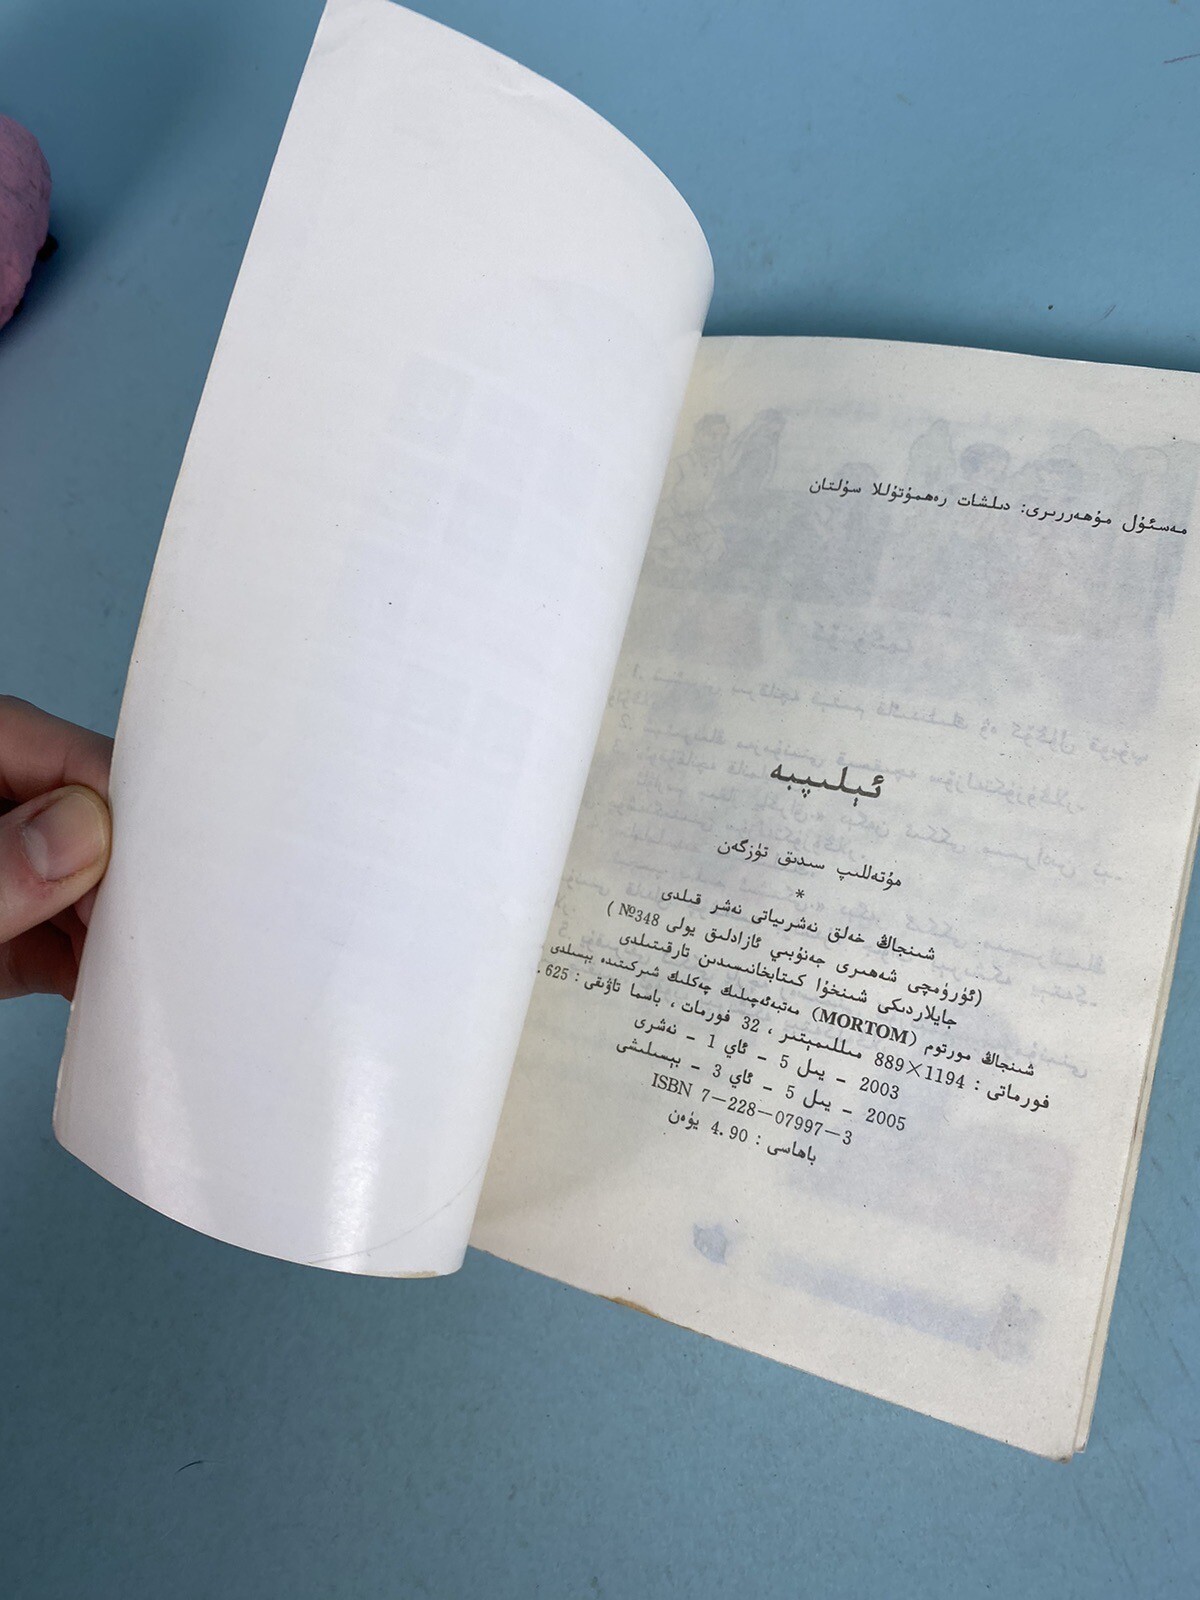 مەسئۇل مۇھەررىرى: دىلشات رەھمۇتۇللا سۇلتان
ئېلىپبە
مۇتەللىپ سىدىق تۈزگەن
*
شىنجاڭ خەلق نەشرىياتى نەشر قىلدى
(ئۈرۈمچى شەھىرى جەنۇبىي ئازادلىق يولى №348)
جايلاردىكى شىنخۇا كىتابخانىسىدىن تارقىتىلدى
شىنجاڭ مورتوم (MORTOM) مەتبەئەچىلىك چەكلىك شىركىتىدە بېسىلدى
فورماتى: 1194×889 مىللىمېتىر، 32 فورمات، باسما تاۋىقى: 625.
2003 - يىل 5 - ئاي 1 - نەشرى
2005 - يىل 5 - ئاي 3 - بېسىلىشى
ISBN 7-228-07997-3
باھاسى: 4.90 يۈەن